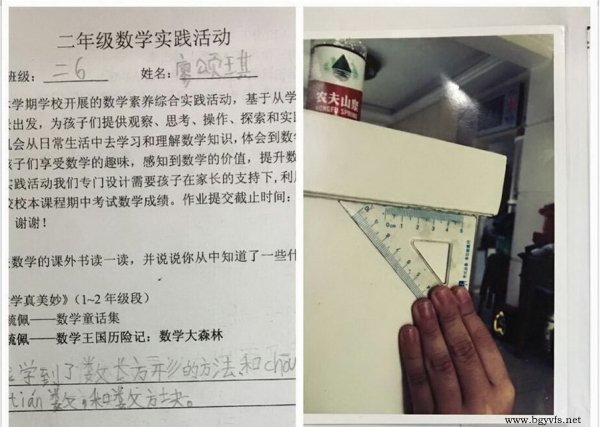 二年级数学实践活动
班级: 二6 姓名: 廖颂琪
学期学校开展的数学素养综合实践活动,基于从学
出发,为孩子们提供观察、思考、操作、探索和实
会从日常生活中去学习和理解数学知识,体会到数
孩子们享受数学的趣味,感知到数学的价值,提升数
实践活动我们专门设计需要孩子在家长的支持下,利
校本课程期中考试数学成绩。作业提交截止时间:
谢谢!
数学的课外书读一读,并说说你从中知道了一些什
学真美妙》(1~2 年级段)
毓佩——数学童话集
毓佩——数学王国历险记:数学大森林
学到了数长方形的方法,和chōu
tián数,和数方块。
农夫山泉
NONGFU SPRING
0cm 1 2 3 4 5
www.bgyvfs.net